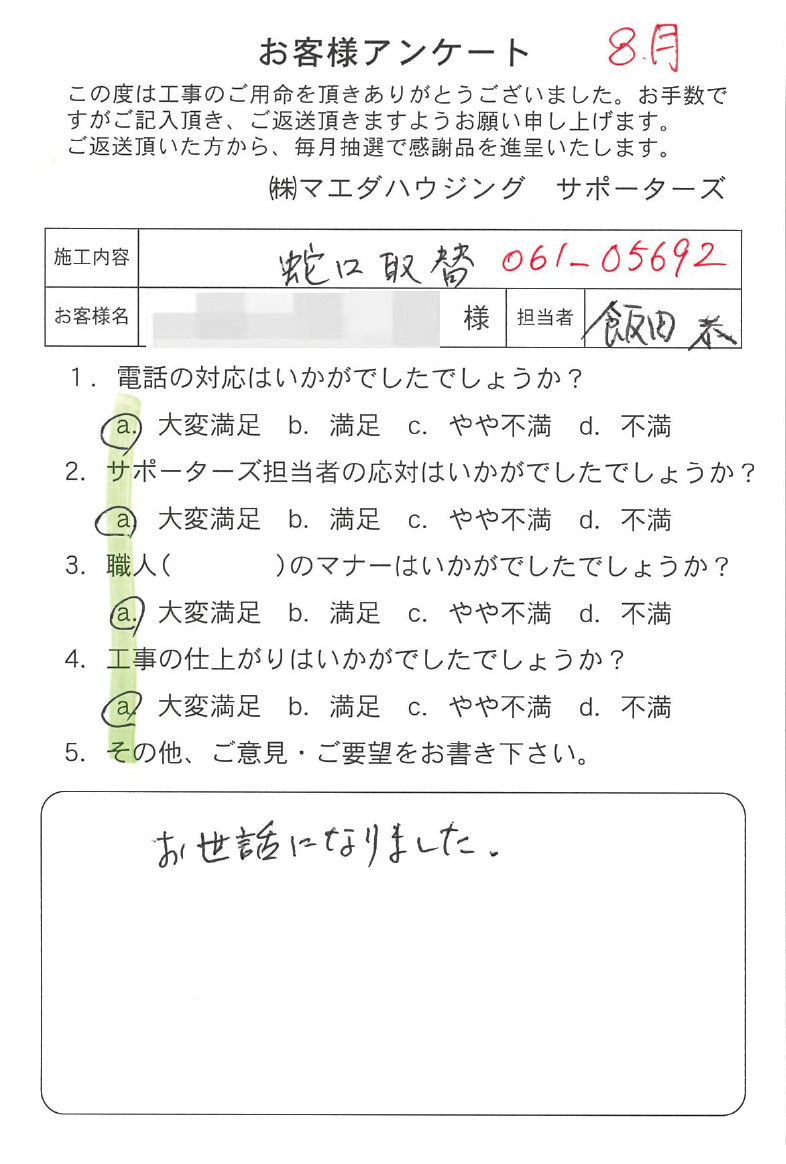 お客様アンケート 8月
この度は工事のご用命を頂きありがとうございました。お手数で
すがご記入頂き、ご返送頂きますようお願い申し上げます。
ご返送頂いた方から、毎月抽選で感謝品を進呈いたします。
㈱マエダハウジング サポーターズ
施工内容 蛇口取替 061-05692
お客様名 様 担当者 飯田 恭
1. 電話の対応はいかがでしたでしょうか？
a. 大変満足 b. 満足 c. やや不満 d. 不満
2. サポーターズ担当者の応対はいかがでしたでしょうか？
a 大変満足 b. 満足 c. やや不満 d. 不満
3. 職人( )のマナーはいかがでしたでしょうか？
a. 大変満足 b. 満足 c. やや不満 d. 不満
4. 工事の仕上がりはいかがでしたでしょうか？
a. 大変満足 b. 満足 c. やや不満 d. 不満
5. その他、ご意見・ご要望をお書き下さい。
お世話になりました.